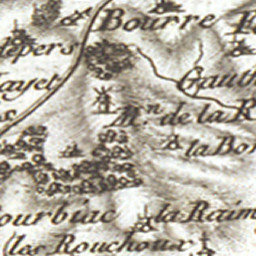 Bourre
epers
Gauth
ayet
Mn de la R
s
la Bor
ourbiac
la Raim
les Rouchoux